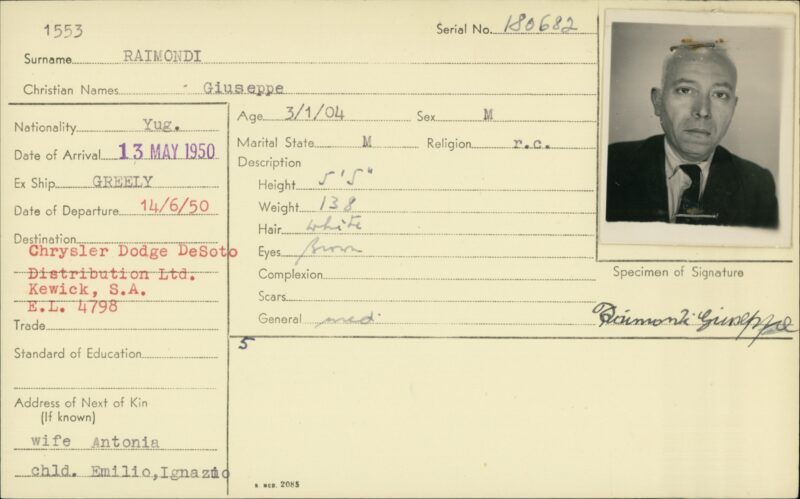 1553
Serial No. 180682
Surname RAIMONDI
Christian Names Giuseppe
Nationality Yug.
Date of Arrival 13 MAY 1950
Ex Ship GREELY
Date of Departure 14/6/50
Destination
Chrysler Dodge DeSoto
Distribution Ltd.
Kewick, S.A.
E.L. 4798
Trade
Standard of Education
Address of Next of Kin
(If known)
wife Antonia
chld. Emilio,Ignazio
Age 3/1/04 Sex M
Marital State M Religion r.c.
Description
Height 5'5"
Weight 138
Hair white
Eyes Brown
Complexion
Scars
General med.
5
Specimen of Signature
Raimondi Giuseppe
R. MCD. 2085